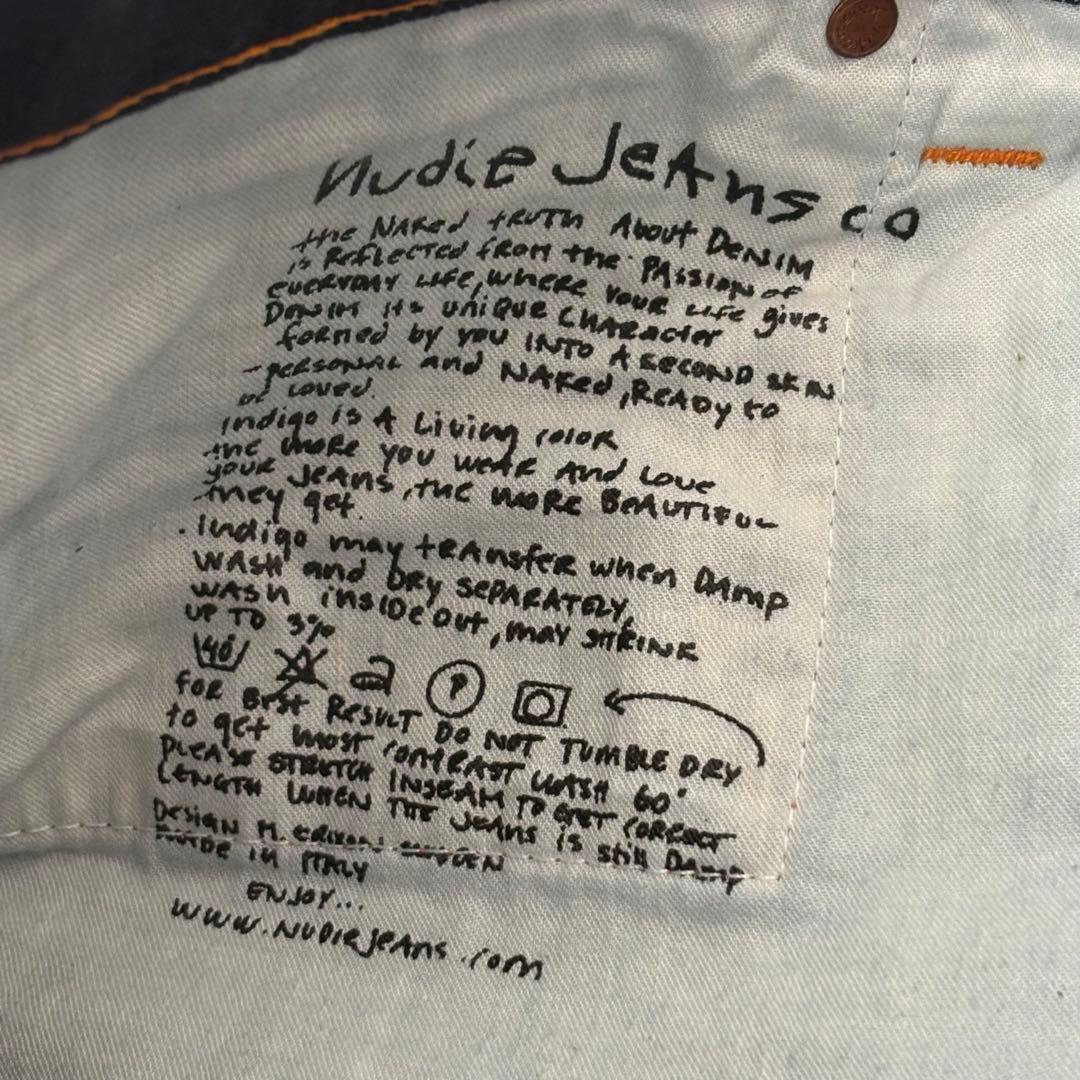 nudie JeAns co
the NAKed tRUTH About DENIM
is ReflECTED fROM the PASSION of
EVERYDAY LIFE, WHERE YOUR LIFE gives
DENIM its UNIQUE CHARACter
formed by you INTO A SECOND SKIN
-PERSONAL and NAKed, READY to
be LOVED.
Indigo is A Living COLOR
the MORE you WEAR And LOVE
your JEANS, the MORE BEAUTIFUL
they get.
. Indigo may tRAnsfer when DAmp
WASH and DRY SEPARATELY,
WASH insideout, may SHRINK
UP TO 3%
40 P
FOR BEST RESULT DO NOT TUMBLE DRY
to get most CONTRAST WASH 60°
PLEASE STRETCH INSEAM TO GET CORRECT
LENGTH WHEN THE JEANS is still DAmp
DESIGN M. ERIXON SWEDEN
MADE IN ITALY
ENJOY...
WWW.NUDIEJEANS.COM